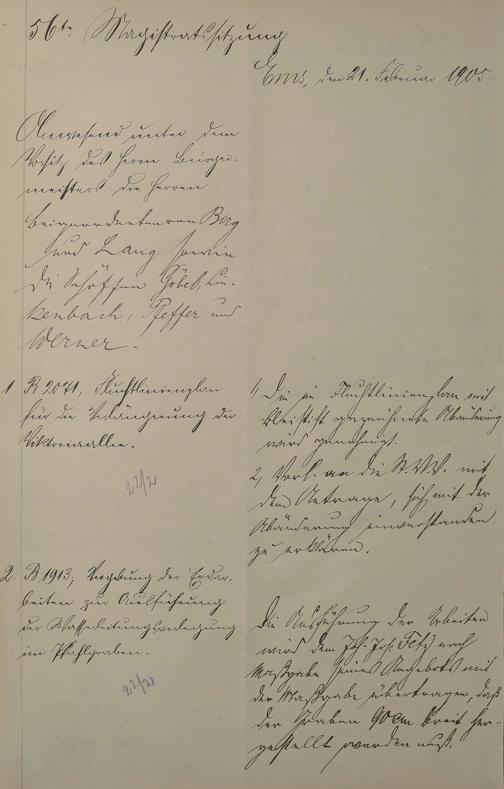 56te Magistratssitzung
Ems, den 21. Februar 1905.
Anwesend unter dem
Vorsitz des Herrn Bürger-
meisters die Herren:
Beigeordneten von Berg
und Lang sowie
die Schöffen Göbel, Lin-
kenbach, Pfeffer und
Werner.
1 B 2071, Fluchtlinienplan
für die Verlängerung der
Viktoriaallee.
22/2
1, Die im Fluchtlinienplan mit
Bleistift gezeichnete Abänderung
wird genehmigt.
2, Vorl. an die St.V.V. mit
dem Antrage, sich mit der
Abänderung einverstanden
zu erklären.
2 B 1913, Vergebung der Erdar-
beiten zur Ausführung
der Wasserleitungsverlegung
im Pfahlgraben.
22/2
Die Ausführung der Arbeiten
wird dem Joh. Jos. Fetz nach
Maßgabe seines Angebots mit
der Maßgabe übertragen, daß
der Graben 90 cm breit her-
gestellt werden muß.